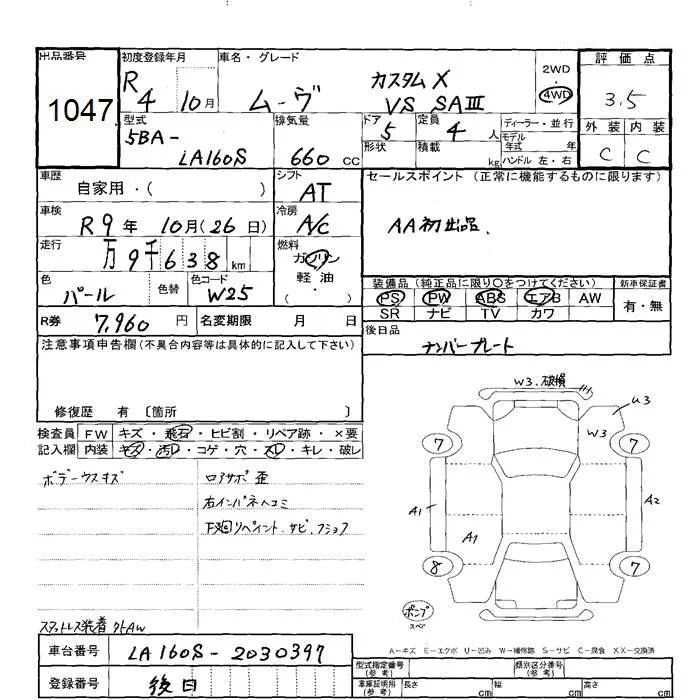 出品番号
1047
初度登録年月
R4 10月
車名・グレード
ムーヴ
カスタムX
VS SAⅢ
2WD
4WD
評価点
3.5
外装 内装
C C
型式
5BA-
LA160S
排気量
660 CC
ドア 5
形状
定員 4 人
積載 kg
ディーラー・並行
モデル年式 年
ハンドル 左・右
車歴
自家用・( )
シフト
AT
車検
R9年 10月(26日)
冷房
A/C
走行
万9千638 km
燃料
ガソリン
軽油
( ・ )
色
パール
色替
色コード
W25
R券 7,960 円
名変期限 月 日
セールスポイント (正常に機能するものに限ります)
AA初出品、
装備品 (純正品に限り○をつけてください)
PS PW ABS エアB AW
SR ナビ TV カワ
新車保証書
有・無
後日品
ナンバープレート
注意事項申告欄(不具合内容等は具体的に記入して下さい)
修復歴 有 〔箇所 〕
検査員 FW キズ・飛石・ヒビ割・リペア跡・×要
記入欄 内装 キズ・汚レ・コゲ・穴・スレ・キレ・破レ
ボデーウスキズ
ロアサポ歪
右インパネヘコミ
下廻リペイント、サビ、フショク
スタットレス装着 外AW
W3、破損
U3
W3
7
7
A1
A2
A1
8
7
ポンプ
スペア
A-キズ E-エクボ U-凹み W-補修跡 S-サビ C-腐食 XX-交換済
車台番号 LA160S-2030397
登録番号 後日
型式指定番号
(参考)
類別区分番号
(参考)
車庫証明用
(参考)
長さ cm 幅 cm 高さ cm